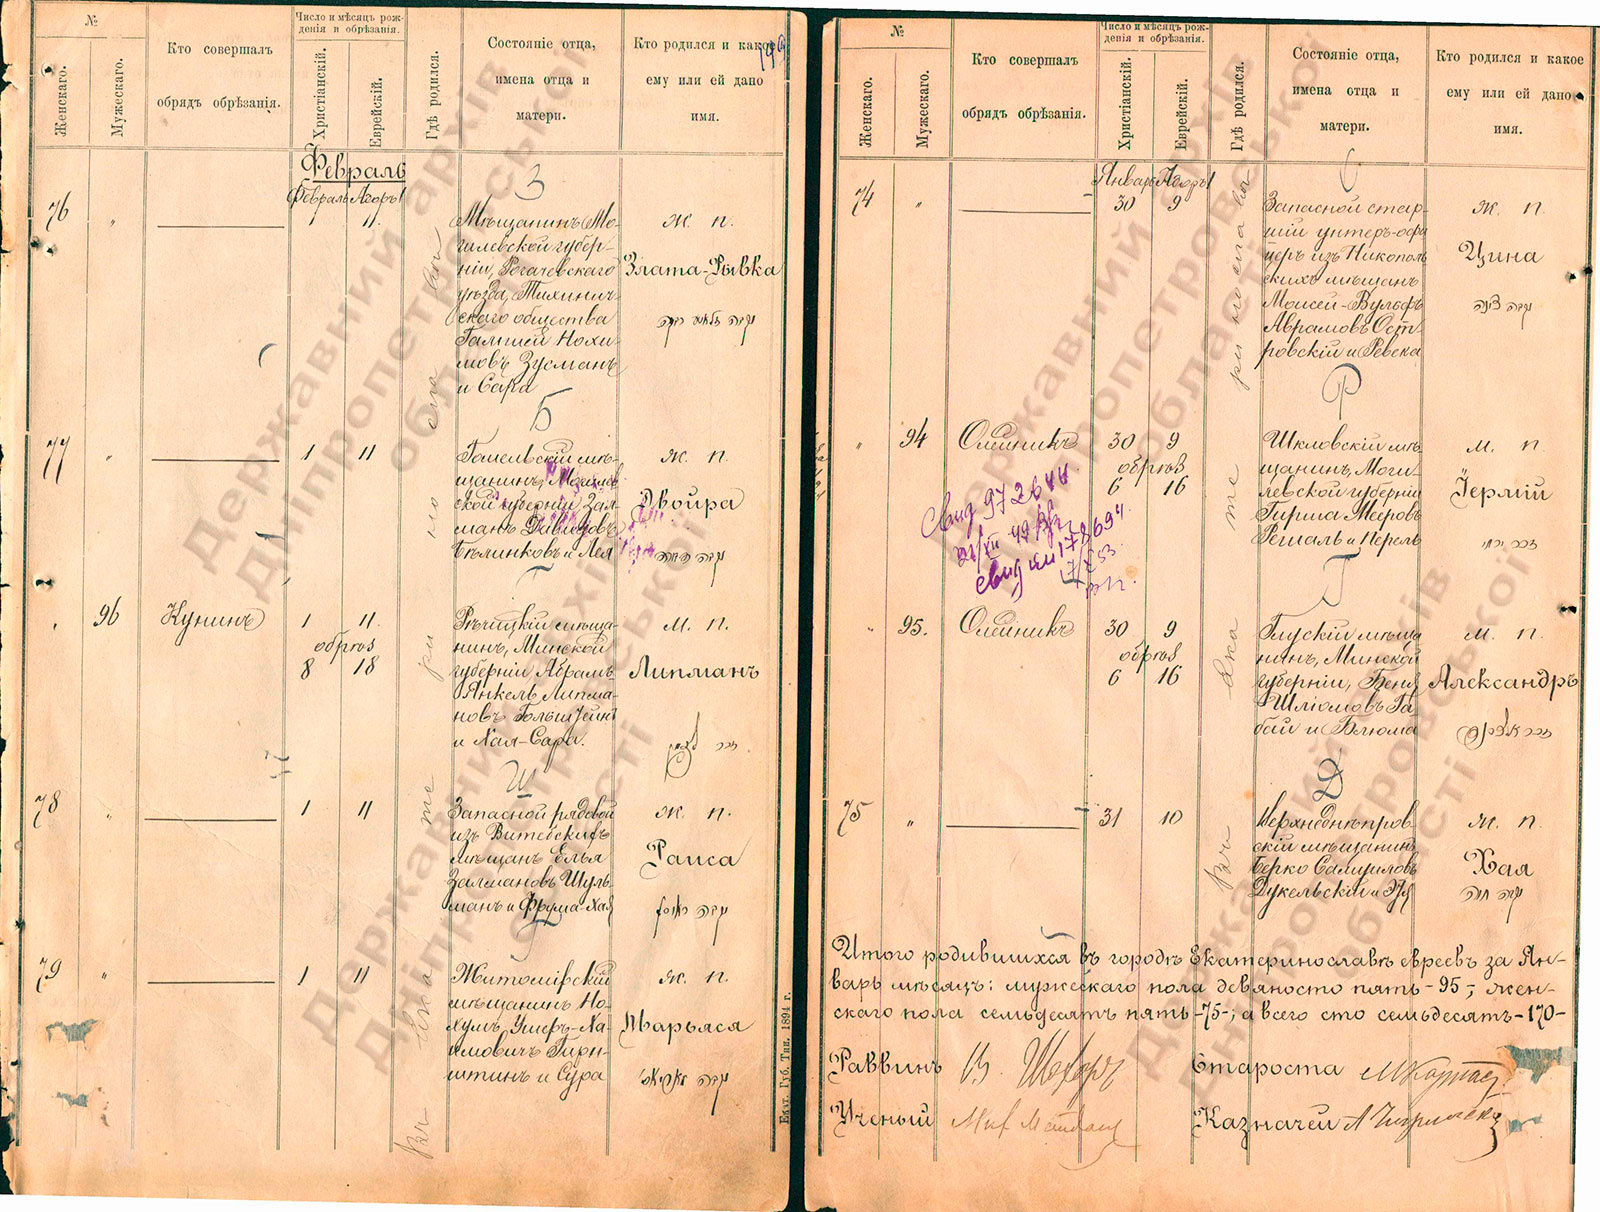 №
Женскаго.
Мужескаго.
Кто совершалъ
обрядъ обрѣзанія.
Число и мѣсяцъ рож-
денія и обрѣзанія.
Христіанскій.
Еврейскій.
Гдѣ родился.
Состояніе отца,
имена отца и
матери.
Кто родился и какое
ему или ей дано
имя.
Февраль
Февраль Адоръ 1
З
76 " 1 11
Мѣщанинъ Мо-
гилевской губер-
ніи, Рогачевскаго
уѣзда, Тихинич-
скаго общества
Нохи-
мовъ Зусманъ
и Сара
ж. п.
Злата-Рывка
Б
77 " 1 11
Гомельскій мѣ-
щанинъ, Могилев
ской губерніи Зал-
манъ Давидовъ
Бѣлинковъ и Лея
ж. п.
Двойра
Г
" 96 Кунинъ 1 11
обрѣз
8 18
Рѣчицкій мѣща-
нинъ, Минской
губерніи, Абрамъ-
Янкель Липма-
новъ Гольштейнъ
и Хая-Сара.
м. п.
Липманъ
Ш
78 " 1 11
Запасной рядовой
изъ Витебскихъ
мѣщанъ Елья
Залмановъ Шуль-
манъ и Фрума-Хая
ж. п.
Раиса
79 " 1 11
Житомірскій
мѣщанинъ Но-
хумъ, Ушеръ-Ха-
имовичъ Гирн-
штинъ и Сура
ж. п.
Марьяся
въ Ека те ри но сла вѣ
Екат. Губ. Тип. 1894 г.
№
Женскаго.
Мужескаго.
Кто совершалъ
обрядъ обрѣзанія.
Число и мѣсяцъ рож-
денія и обрѣзанія.
Христіанскій.
Еврейскій.
Гдѣ родился.
Состояніе отца,
имена отца и
матери.
Кто родился и какое
ему или ей дано
имя.
Январь Адоръ 1
74 " 30 9
Запасной стар-
шій унтеръ-офи
церъ изъ Никополь
скихъ мѣщанъ
Моисей-Вульфъ
Аврамовъ Ост-
ровскій и Ревека
ж. п.
Цина
Р
" 94 Олейникъ 30 9
обрѣз
6 16
Шкловскій мѣ-
щанинъ, Моги-
левской губерніи
Гирша Мееровъ
и Перель
м. п.
Іермій
Свид 972644
Г
" 95. Олейникъ 30 9
обрѣз
6 16
Глускій мѣща
нинъ, Минской
губерніи, Беня
Шліомовъ Га-
бай и Блюма
м. п.
Александръ
Д
75 " 31 10
Верхнеднѣпров
скій мѣщанинъ
Берко Самуиловъ
Дукельскій и Эля
ж. п.
Хая
въ Ека те ри но сла вѣ
Итого родившихся въ городѣ Екатеринославѣ евреевъ за Ян-
варь мѣсяцъ: мужескаго пола девяносто пять -95-, жен-
скаго пола семьдесятъ пять -75-; а всего сто семьдесятъ -170-
Раввинъ Староста
Ученый Казначей
Державний архів
Дніпропетровської
області